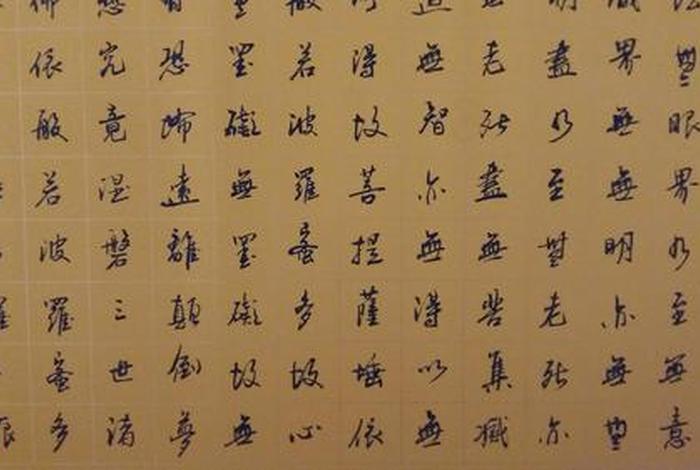 法無眼界乃至無意
識界無無明亦無無
明盡乃至無老死亦
無老死盡無苦集滅
道無智亦無得以無
所得故菩提薩埵依
般若波羅蜜多故心
無罣礙無罣礙故無
有恐怖遠離顛倒夢
想究竟涅磐三世諸
佛依般若波羅蜜多